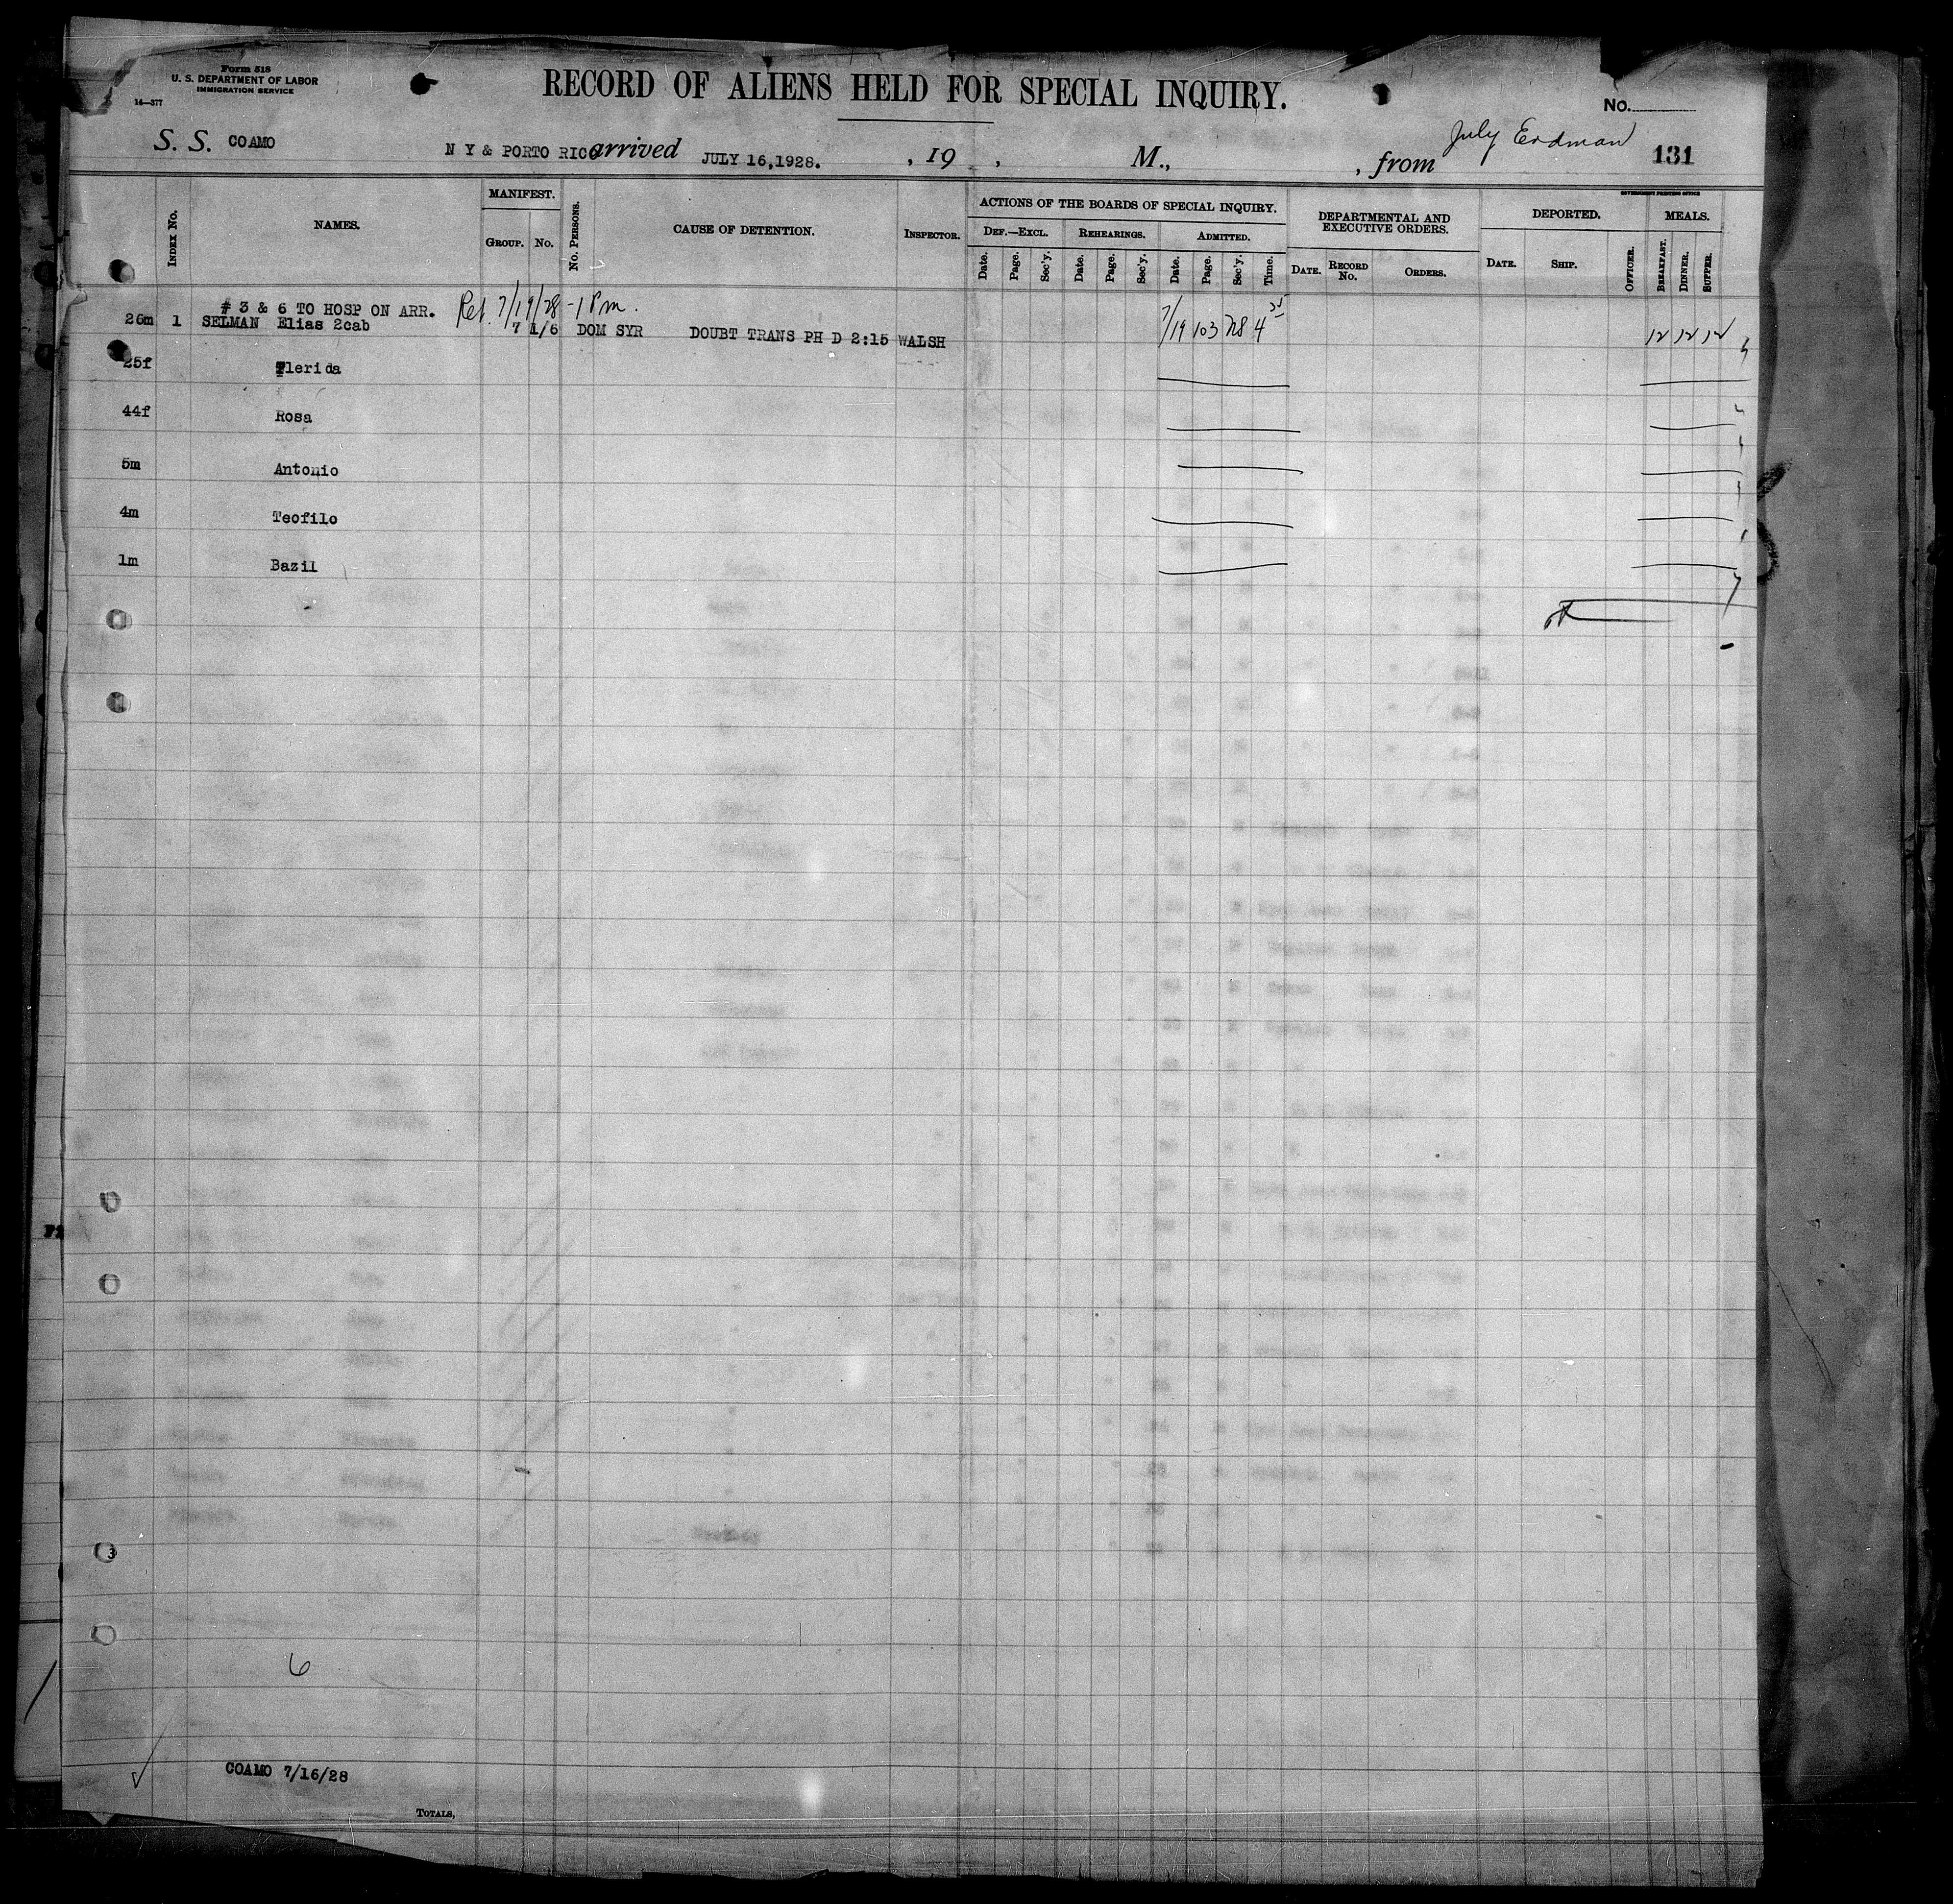 Form 518
U. S. DEPARTMENT OF LABOR
IMMIGRATION SERVICE
14—377
RECORD OF ALIENS HELD FOR SPECIAL INQUIRY.
No.
S. S. COAMO N Y & PORTO RICO arrived JULY 16,1928. , 19 , M., , from July Erdman 131
GOVERNMENT PRINTING OFFICE
INDEX NO.
NAMES.
MANIFEST.
GROUP. NO.
NO. PERSONS.
CAUSE OF DETENTION.
INSPECTOR.
ACTIONS OF THE BOARDS OF SPECIAL INQUIRY.
DEF.—EXCL. REHEARINGS. ADMITTED.
Date. Page. Sec'y. Date. Page. Sec'y. Date. Page. Sec'y. Time.
DEPARTMENTAL AND
EXECUTIVE ORDERS.
DATE. RECORD NO. ORDERS.
DEPORTED.
DATE. SHIP. OFFICER.
MEALS.
BREAKFAST. DINNER. SUPPER.
# 3 & 6 TO HOSP ON ARR. Ret. 7/19/28 - 1 Pm.
26m 1 SELMAN Elias 2cab 7 1/6 DOM SYR DOUBT TRANS PH D 2:15 WALSH 7/19 103 4 12 12 12
25f Flerida
44f Rosa
5m Antonio
4m Teofilo
1m Bazil
3
6
COAMO 7/16/28
TOTALS,